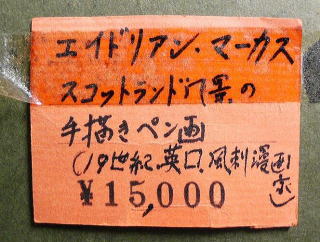 エイドリアン・マーカス
スコットランド風景の
手描きペン画
(19世紀、英国、風刺漫画家)
¥15,000